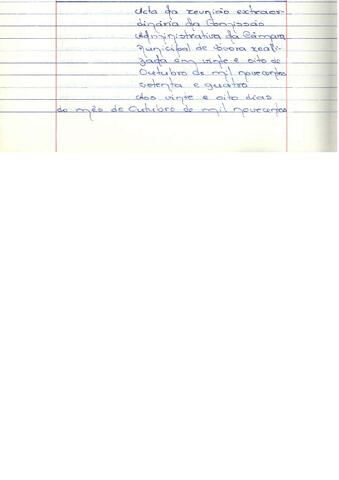 Acta da reunião extraor-
dinária da Comissão
Administrativa da Câmara
Municipal de Évora reali-
zada em vinte e oito de
Outubro de mil novecentos
setenta e quatro
Aos vinte e oito dias
do mês de Outubro de mil novecentos